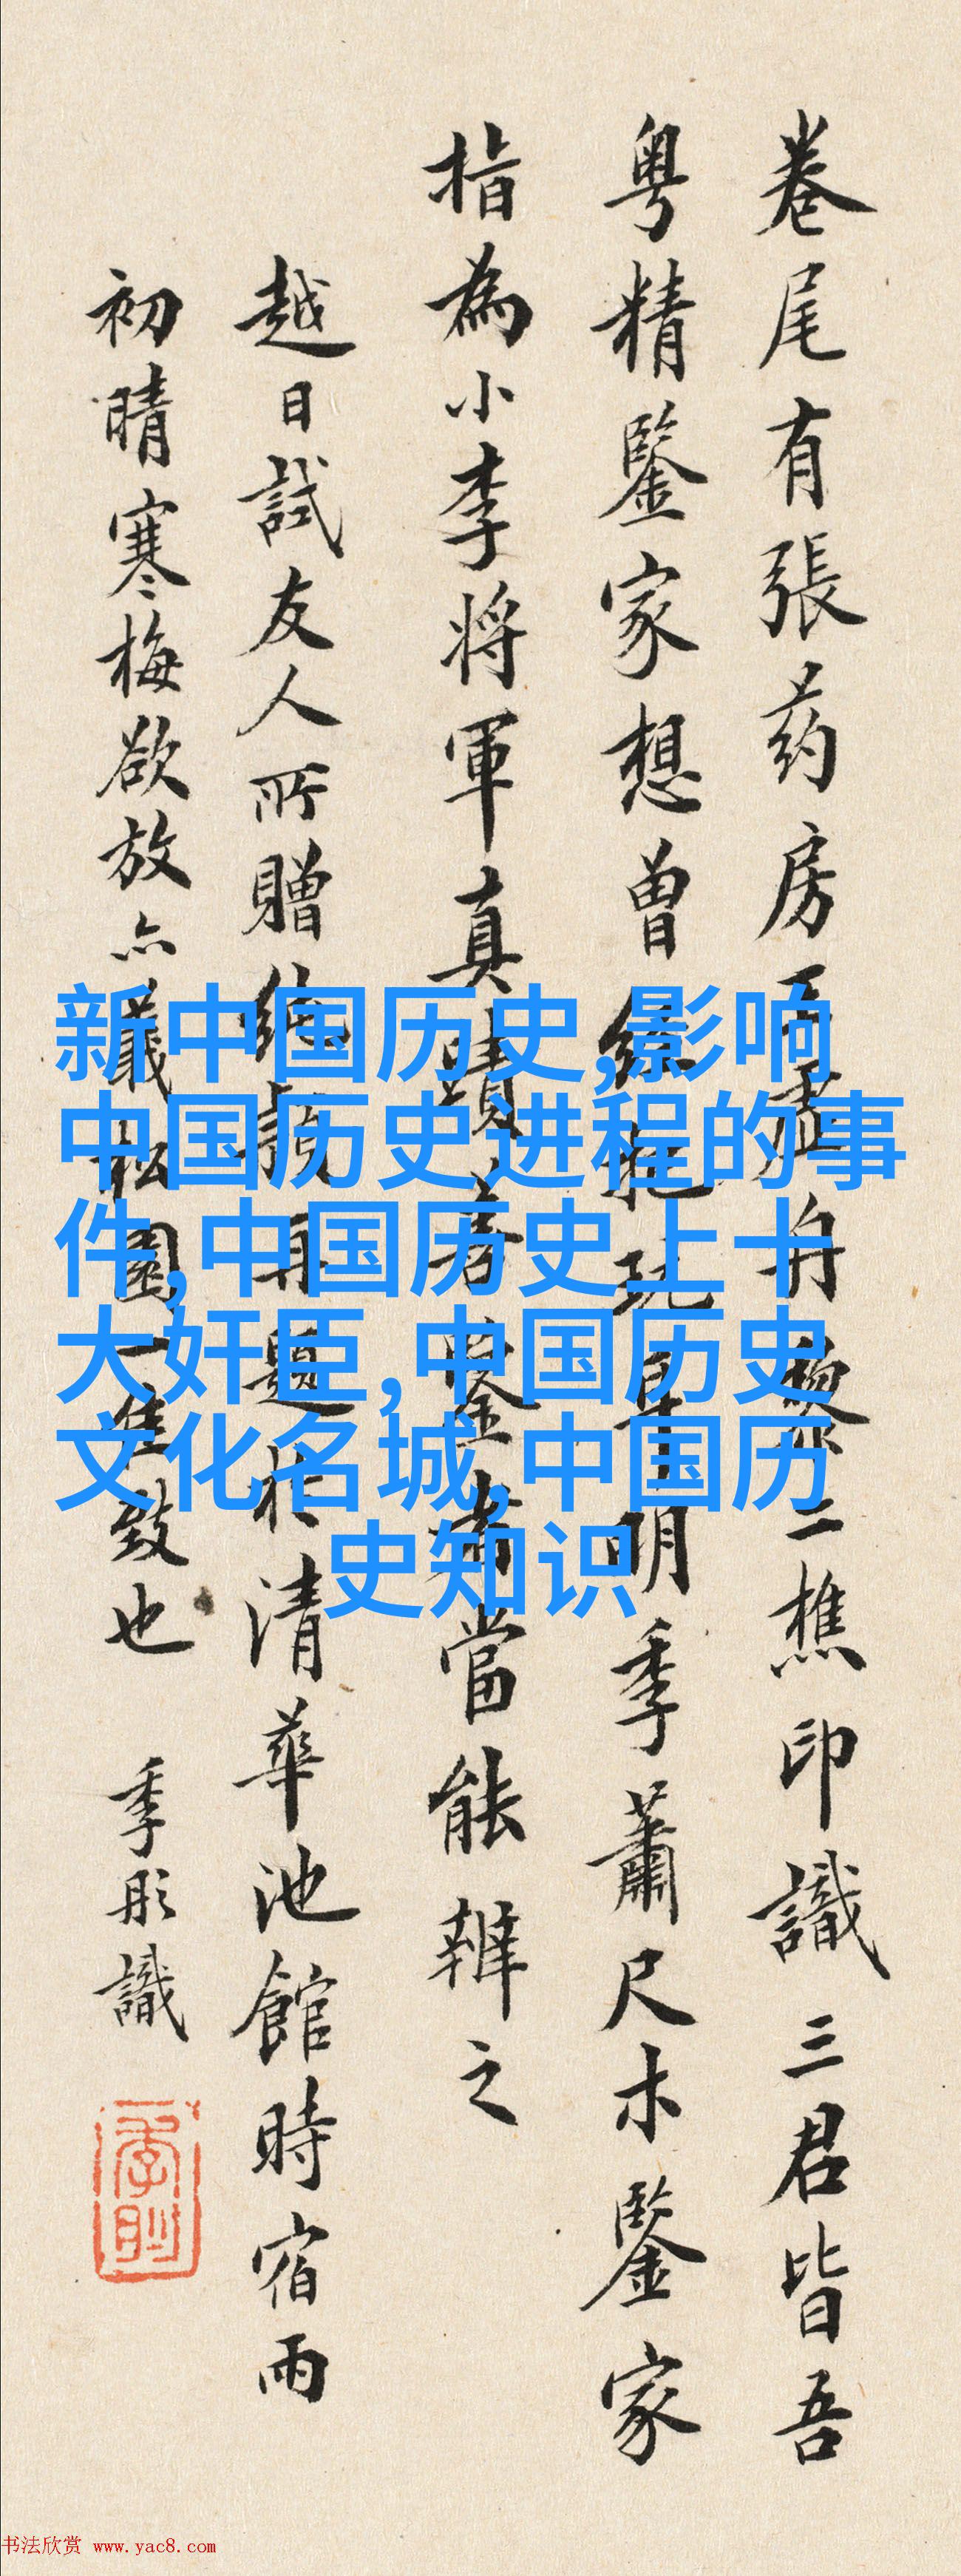 卷尾有張药房舟黎二樵印識三君皆吾
粤精鑒家想曾經把玩明季蕭尺木鑒家
指為小李将軍真蹟善鑒者當能辨之
越日試友人所贈再題於清華池館時宿雨
初晴寒梅欲放亦園一佳致也 季彤識
新中国历史,影响
中国历史进程的事
件,中国历史上十
大奸臣,中国历史
文化名城,中国历
史知识
书法欣赏 www.yac8.com